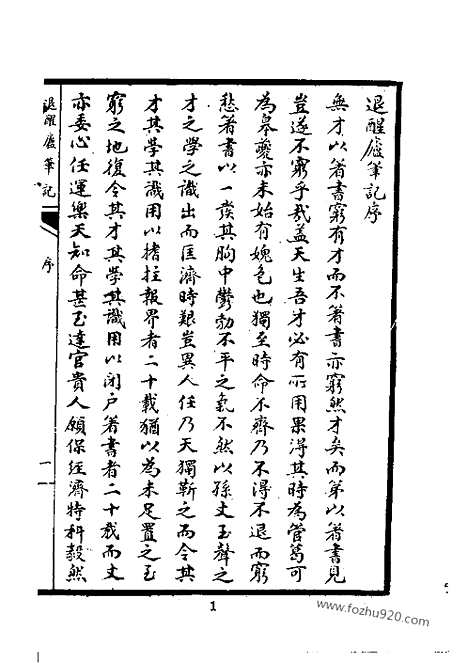 退醒廬筆記序
無才以著書窮有才而不著書亦窮然才矣而第以著書見
豈遂不窮乎哉蓋天生吾才必有所用果得其時為管葛可
為皋夔亦未始有媿色也獨至時命不齊乃不得不退而窮
愁著書以一發其胸中鬱勃不平之氣不然以孫丈玉聲之
才之學之識出而匡濟時艱豈異人任乃天獨靳之而令其
才其學其識用以搘拄報界者二十載猶以為未足置之至
窮之地復令其才其學其識用以閉戶著書者二十載而丈
亦委心任運樂天知命甚至達官貴人願保經濟特科毅然
退醒廬筆記
序
一
1
www.fozhu920.com